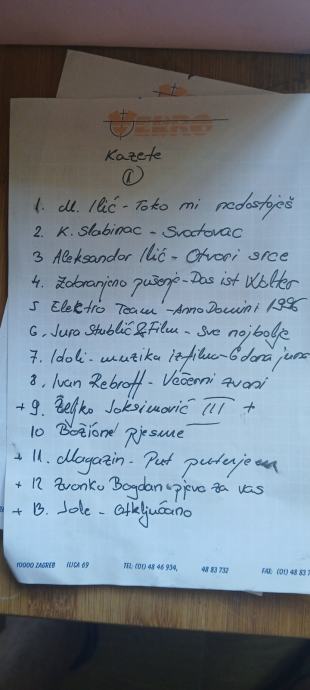 FERRO
Kazete
1
1. M. Ilić - Toko mi nedostaješ
2 K. Slabinac - Svatovac
3 Aleksandar Ilić - Otvori srce
4. Zabranjeno pušenje - Das ist Walter
5 Elektro Team - Anno Domini 1996
6, Jura Stublić & Film - Sve najbolje
7. Idoli - muzika iz filma - 6 dana juna
8, Ivan Rebroff - Večernji zvoni
+ 9. Željko Joksimović III +
10 Božićne pjesme
+ 11. Magazin - Put putujem
+ 12 Zvonko Bogdan pjeva za vas
+ 13. Jole - Otključano
10000 ZAGREB ILICA 69 TEL: (01) 48 46 934, 48 83 732 FAX: (01) 48 83 7